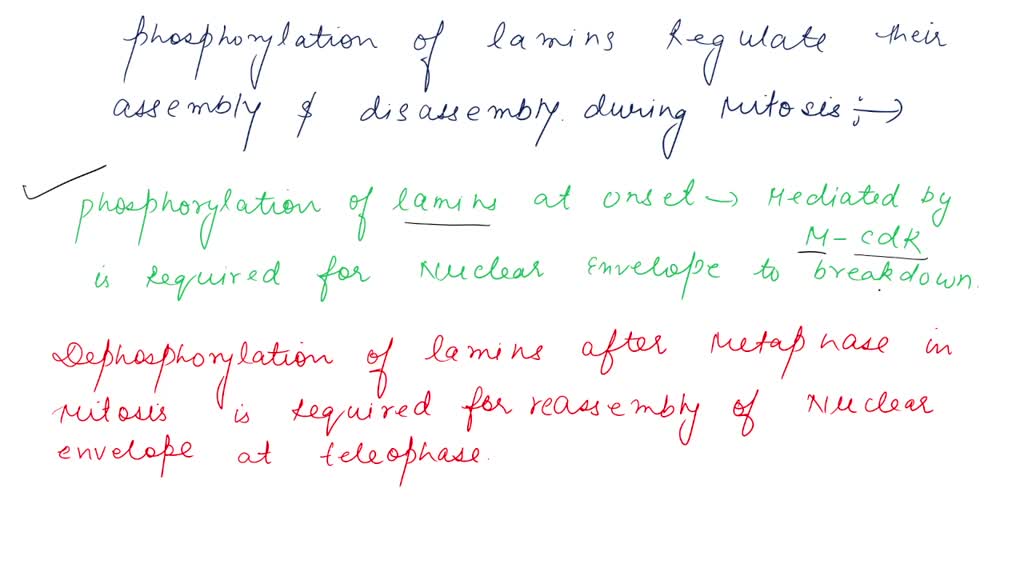 phosphorylation of lamins Regulate their
assembly & disassembly during Mitosis :→
phosphorylation of lamins at onset → Mediated by
M-cdk
is required for Nuclear Envelope to breakdown.
Dephosphorylation of lamins after Metaphase in
Mitosis is required for reassembly of Nuclear
envelope at teleophase.